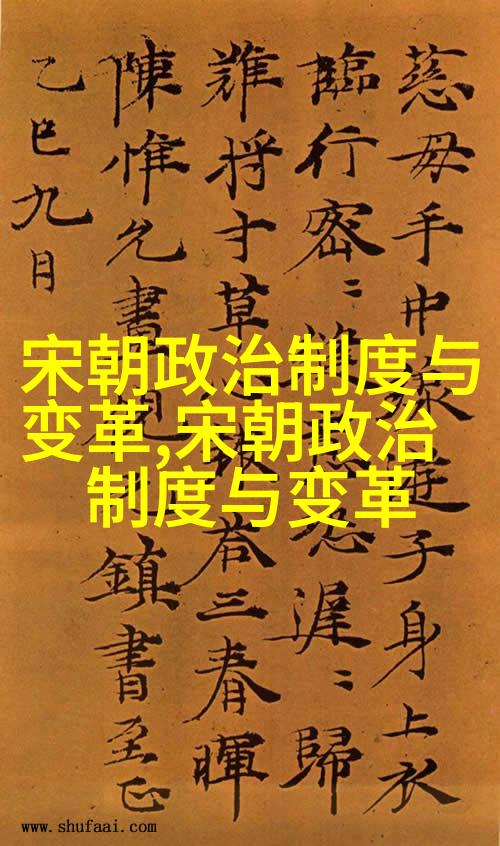 慈母手中線遊子身上衣
臨行密〻恐遲〻歸
難将寸草心荅三春暉
陳惟允書鎮書至正
乙巳九月
宋朝政治制度与
变革,宋朝政治
制度与变革
www.shufaai.com